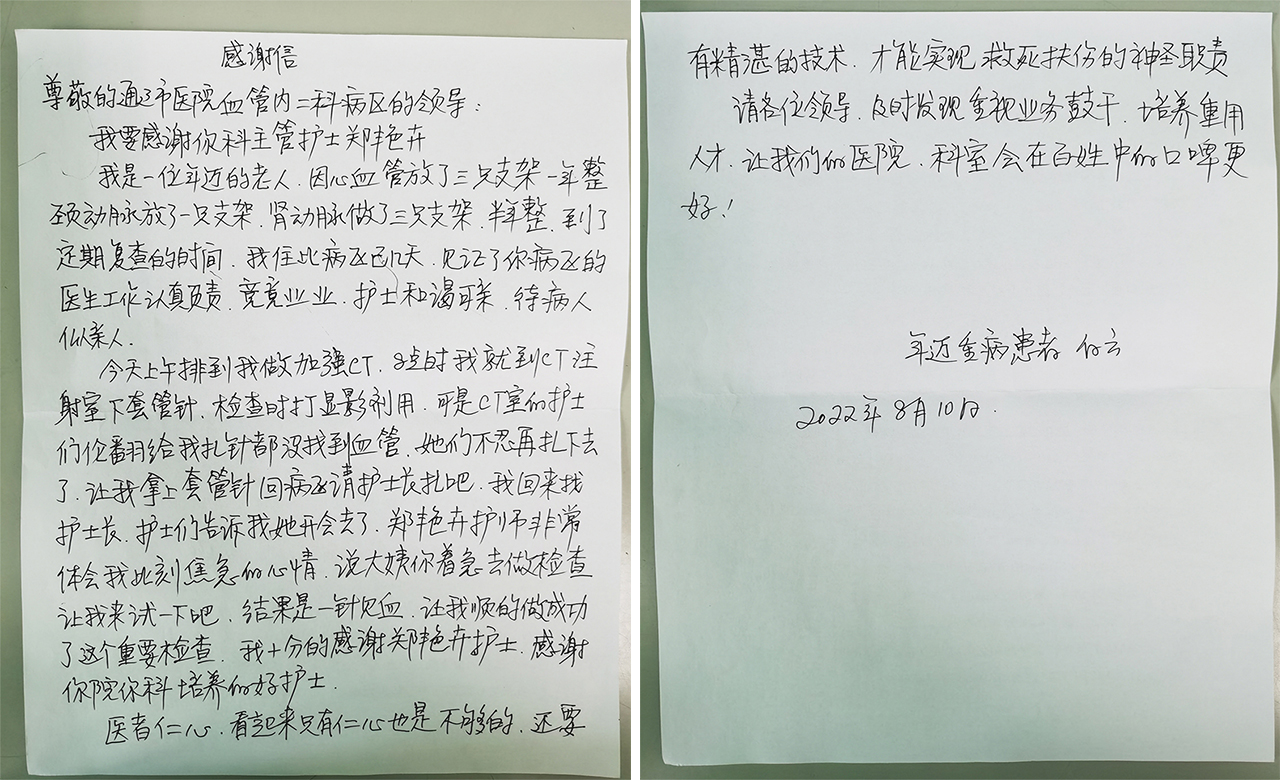 感谢信
尊敬的通辽市医院血管内二科病区的领导：
我要感谢你科主管护士郑艳卉
我是一位年迈的老人.因心血管放了三只支架一年整
颈动脉放了一只支架.肾动脉做了三只支架.半年整.到了
定期复查的时间.我住此病区已几天.见证了你病区的
医生工作认真负责.竞竞业业.护士和谒可亲.待病人
似亲人.
今天上午排到我做加强CT.8点时我就到CT注
射室下套管针.检查时打显影剂用.可是CT室的护士
们伦翻给我扎针都没找到血管.她们不忍再扎下去
了.让我拿上套管针回病区请护士长扎吧.我回来找
护士长.护士们告诉我她开会去了.郑艳卉护师非常
体会我此刻焦急的心情.说大姨你着急去做检查
让我来试一下吧.结果是一针见血.让我顺的做成功
了这个重要检查.我十分的感谢郑艳卉护士.感谢
你院你科培养的好护士.
医者仁心.看起来只有仁心也是不够的.还要
有精湛的技术.才能实现救死扶伤的神圣职责
请各位领导.及时发现重视业务鼓干.培养重用
人才.让我们的医院.科室会在百姓中的口啤更
好！
年迈重病患者 付云
2022年8月10日.